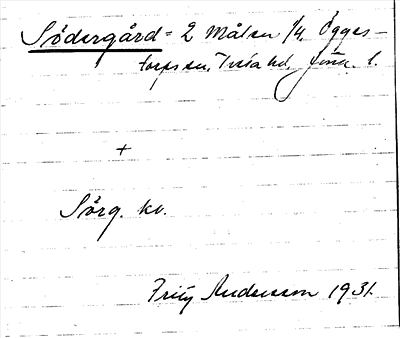 Södergård = 2 Målen 1/4, Ögges-
torps sn, Tveta hd, Jönk. l.
+
Sörg. kv.
Fritz Andersson 1931.